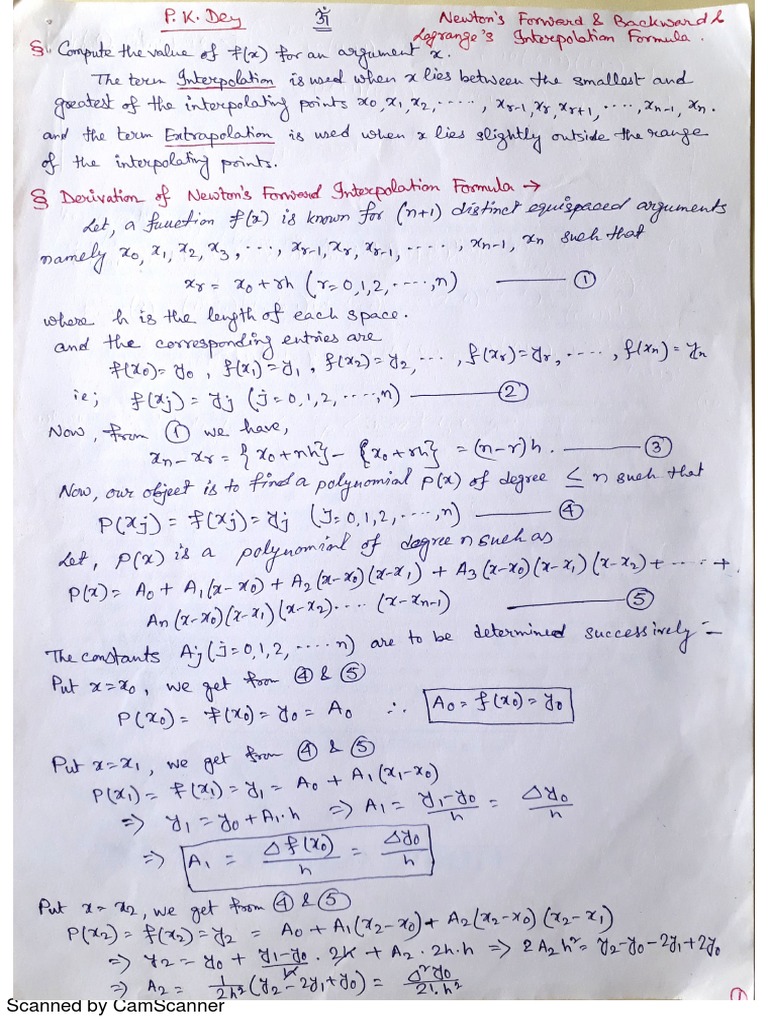 P. K. Dey ॐ Newton's Forward & Backward &
Lagrange's Interpolation Formula.
§ Compute the value of f(x) for an argument x.
The term Interpolation is used when x lies between the smallest and
greatest of the interpolating points x₀, x₁, x₂, ....., xᵣ₋₁, xᵣ, xᵣ₊₁, ...., xₙ₋₁, xₙ.
and the term Extrapolation is used when x lies slightly outside the range
of the interpolating points.
§ Derivation of Newton's Forward Interpolation Formula →
Let, a function f(x) is known for (n+1) distinct equispaced arguments
namely x₀, x₁, x₂, x₃, ...., xᵣ₋₁, xᵣ, xᵣ₋₁, ....., xₙ₋₁, xₙ such that
xᵣ = x₀ + rh (r=0,1,2,....,n) —— ①
where h is the length of each space.
and the corresponding entries are
f(x₀)=y₀, f(x₁)=y₁, f(x₂)=y₂, ...., f(xᵣ)=yᵣ, ....., f(xₙ)=yₙ
ie; f(xⱼ) = yⱼ (j=0,1,2,....,n) —— ②
Now, from ① we have,
xₙ-xᵣ = {x₀+nh} - {x₀+rh} = (n-r)h. —— ③
Now, our object is to find a polynomial P(x) of degree ≤ n such that
P(xⱼ) = f(xⱼ) = yⱼ (J=0,1,2,....,n) —— ④
Let, P(x) is a polynomial of degree n such as
P(x) = A₀ + A₁(x-x₀) + A₂(x-x₀)(x-x₁) + A₃(x-x₀)(x-x₁)(x-x₂) + ..... +
Aₙ(x-x₀)(x-x₁)(x-x₂).... (x-xₙ₋₁) —— ⑤
The constants Aⱼ (j=0,1,2,.....n) are to be determined successively :-
Put x=x₀, we get from ④ & ⑤
P(x₀) = f(x₀) = y₀ = A₀ ∴ A₀ = f(x₀) = y₀
Put x=x₁, we get from ④ & ⑤
P(x₁) = f(x₁) = y₁ = A₀ + A₁(x₁-x₀)
⇒ y₁ = y₀ + A₁.h ⇒ A₁ = (y₁-y₀)/h = Δy₀/h
⇒ A₁ = Δf(x₀)/h = Δy₀/h
Put x = x₂, we get from ④ & ⑤
P(x₂) = f(x₂) = y₂ = A₀ + A₁(x₂-x₀) + A₂(x₂-x₀)(x₂-x₁)
⇒ y₂ = y₀ + (y₁-y₀)/h . 2h + A₂.2h.h ⇒ 2A₂h² = y₂-y₀-2y₁+2y₀
⇒ A₂ = 1/2h² (y₂-2y₁+y₀) = Δ²y₀/2!.h²
①
Scanned by CamScanner